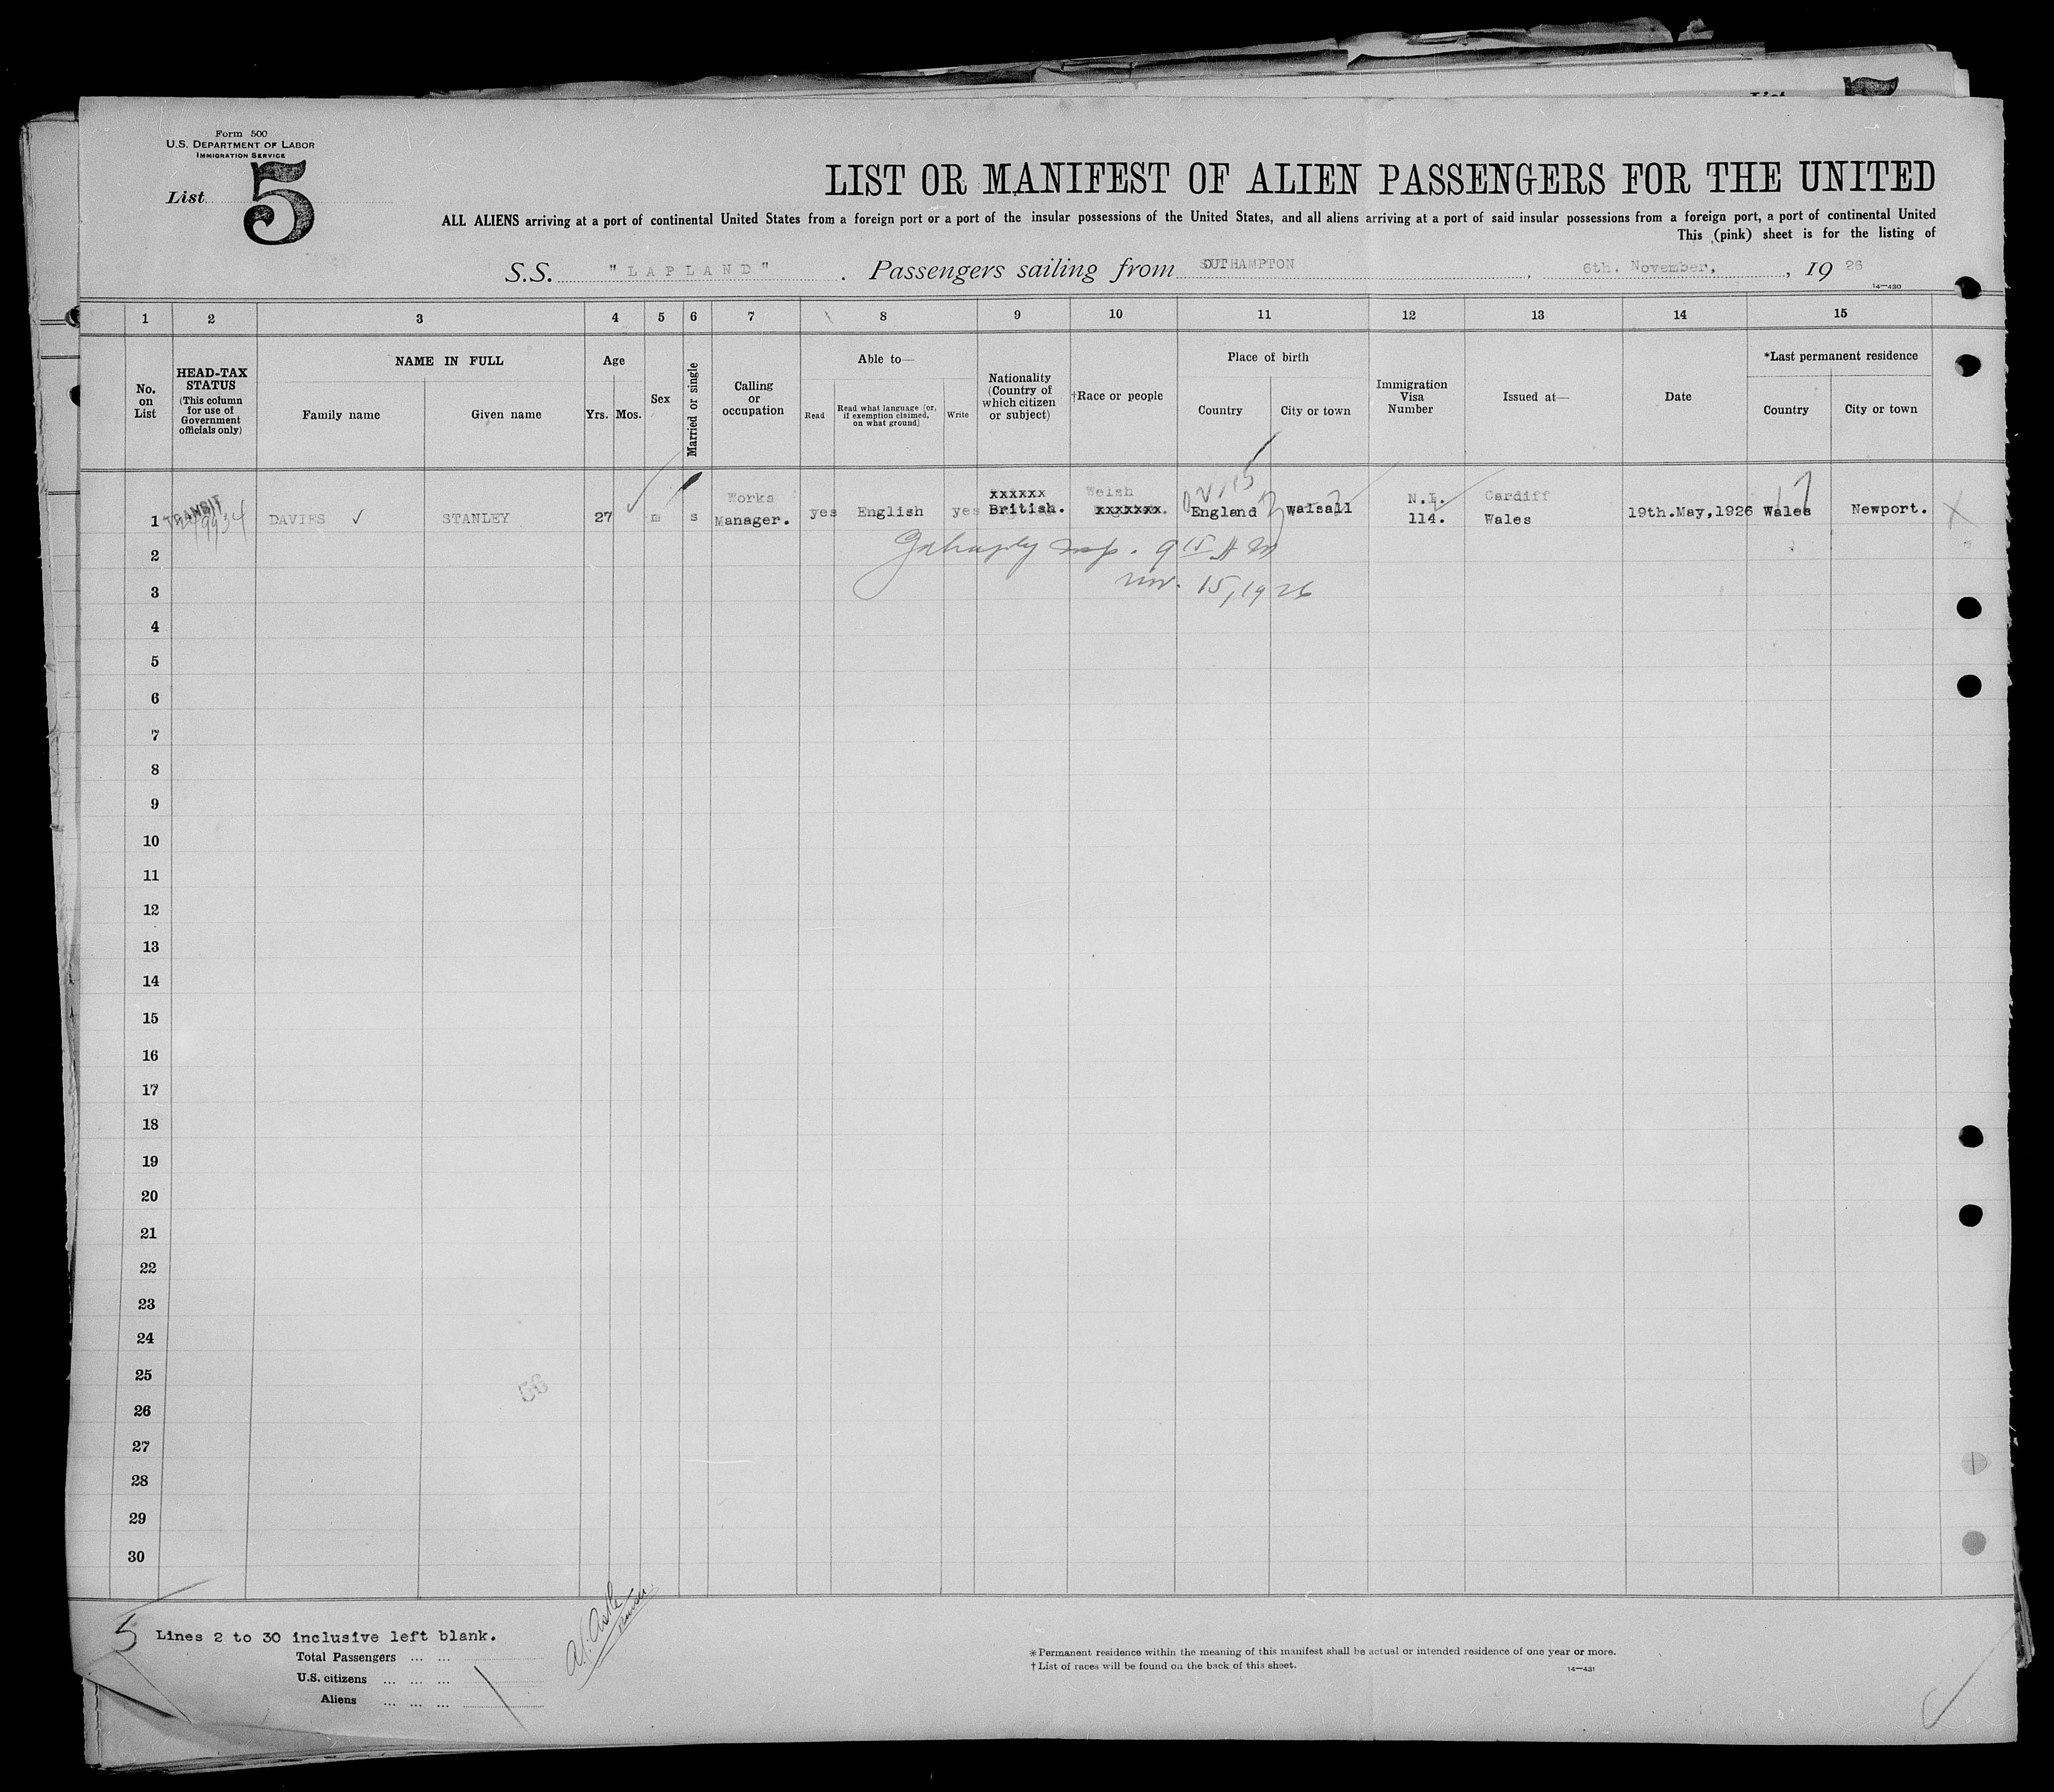 Form 500
U.S. DEPARTMENT OF LABOR
IMMIGRATION SERVICE
List 5
List
LIST OR MANIFEST OF ALIEN PASSENGERS FOR THE UNITED
ALL ALIENS arriving at a port of continental United States from a foreign port or a port of the insular possessions of the United States, and all aliens arriving at a port of said insular possessions from a foreign port, a port of continental United
This (pink) sheet is for the listing of
S.S. "LAPLAND". Passengers sailing from SOUTHAMPTON, 6th. November, , 19 26
14—430
1 2 3 4 5 6 7 8 9 10 11 12 13 14 15
No. on List
HEAD-TAX STATUS (This column for use of Government officials only)
NAME IN FULL
Family name Given name
Age
Yrs. Mos.
Sex
Married or single
Calling or occupation
Able to—
Read
Read what language [or, if exemption claimed, on what ground]
Write
Nationality (Country of which citizen or subject)
†Race or people
Place of birth
Country City or town
Immigration Visa Number
Issued at—
Date
*Last permanent residence
Country City or town
1 TRANSIT DAVIES ✓ STANLEY 27 m s Works Manager. yes English yes xxxxxx British. Welsh xxxxxxx England Walsall N.I. 114. Cardiff Wales 19th.May,1926 Wales Newport. X
2 9 15 A M
3 Nov. 15, 1926
4
5
6
7
8
9
10
11
12
13
14
15
16
17
18
19
20
21
22
23
24
25
56
26
27
28
29
30
5 Lines 2 to 30 inclusive left blank.
Total Passengers ... ...
U.S. citizens ... ... ...
Aliens ... ... ...
*Permanent residence within the meaning of this manifest shall be actual or intended residence of one year or more.
†List of races will be found on the back of this sheet.
14—431